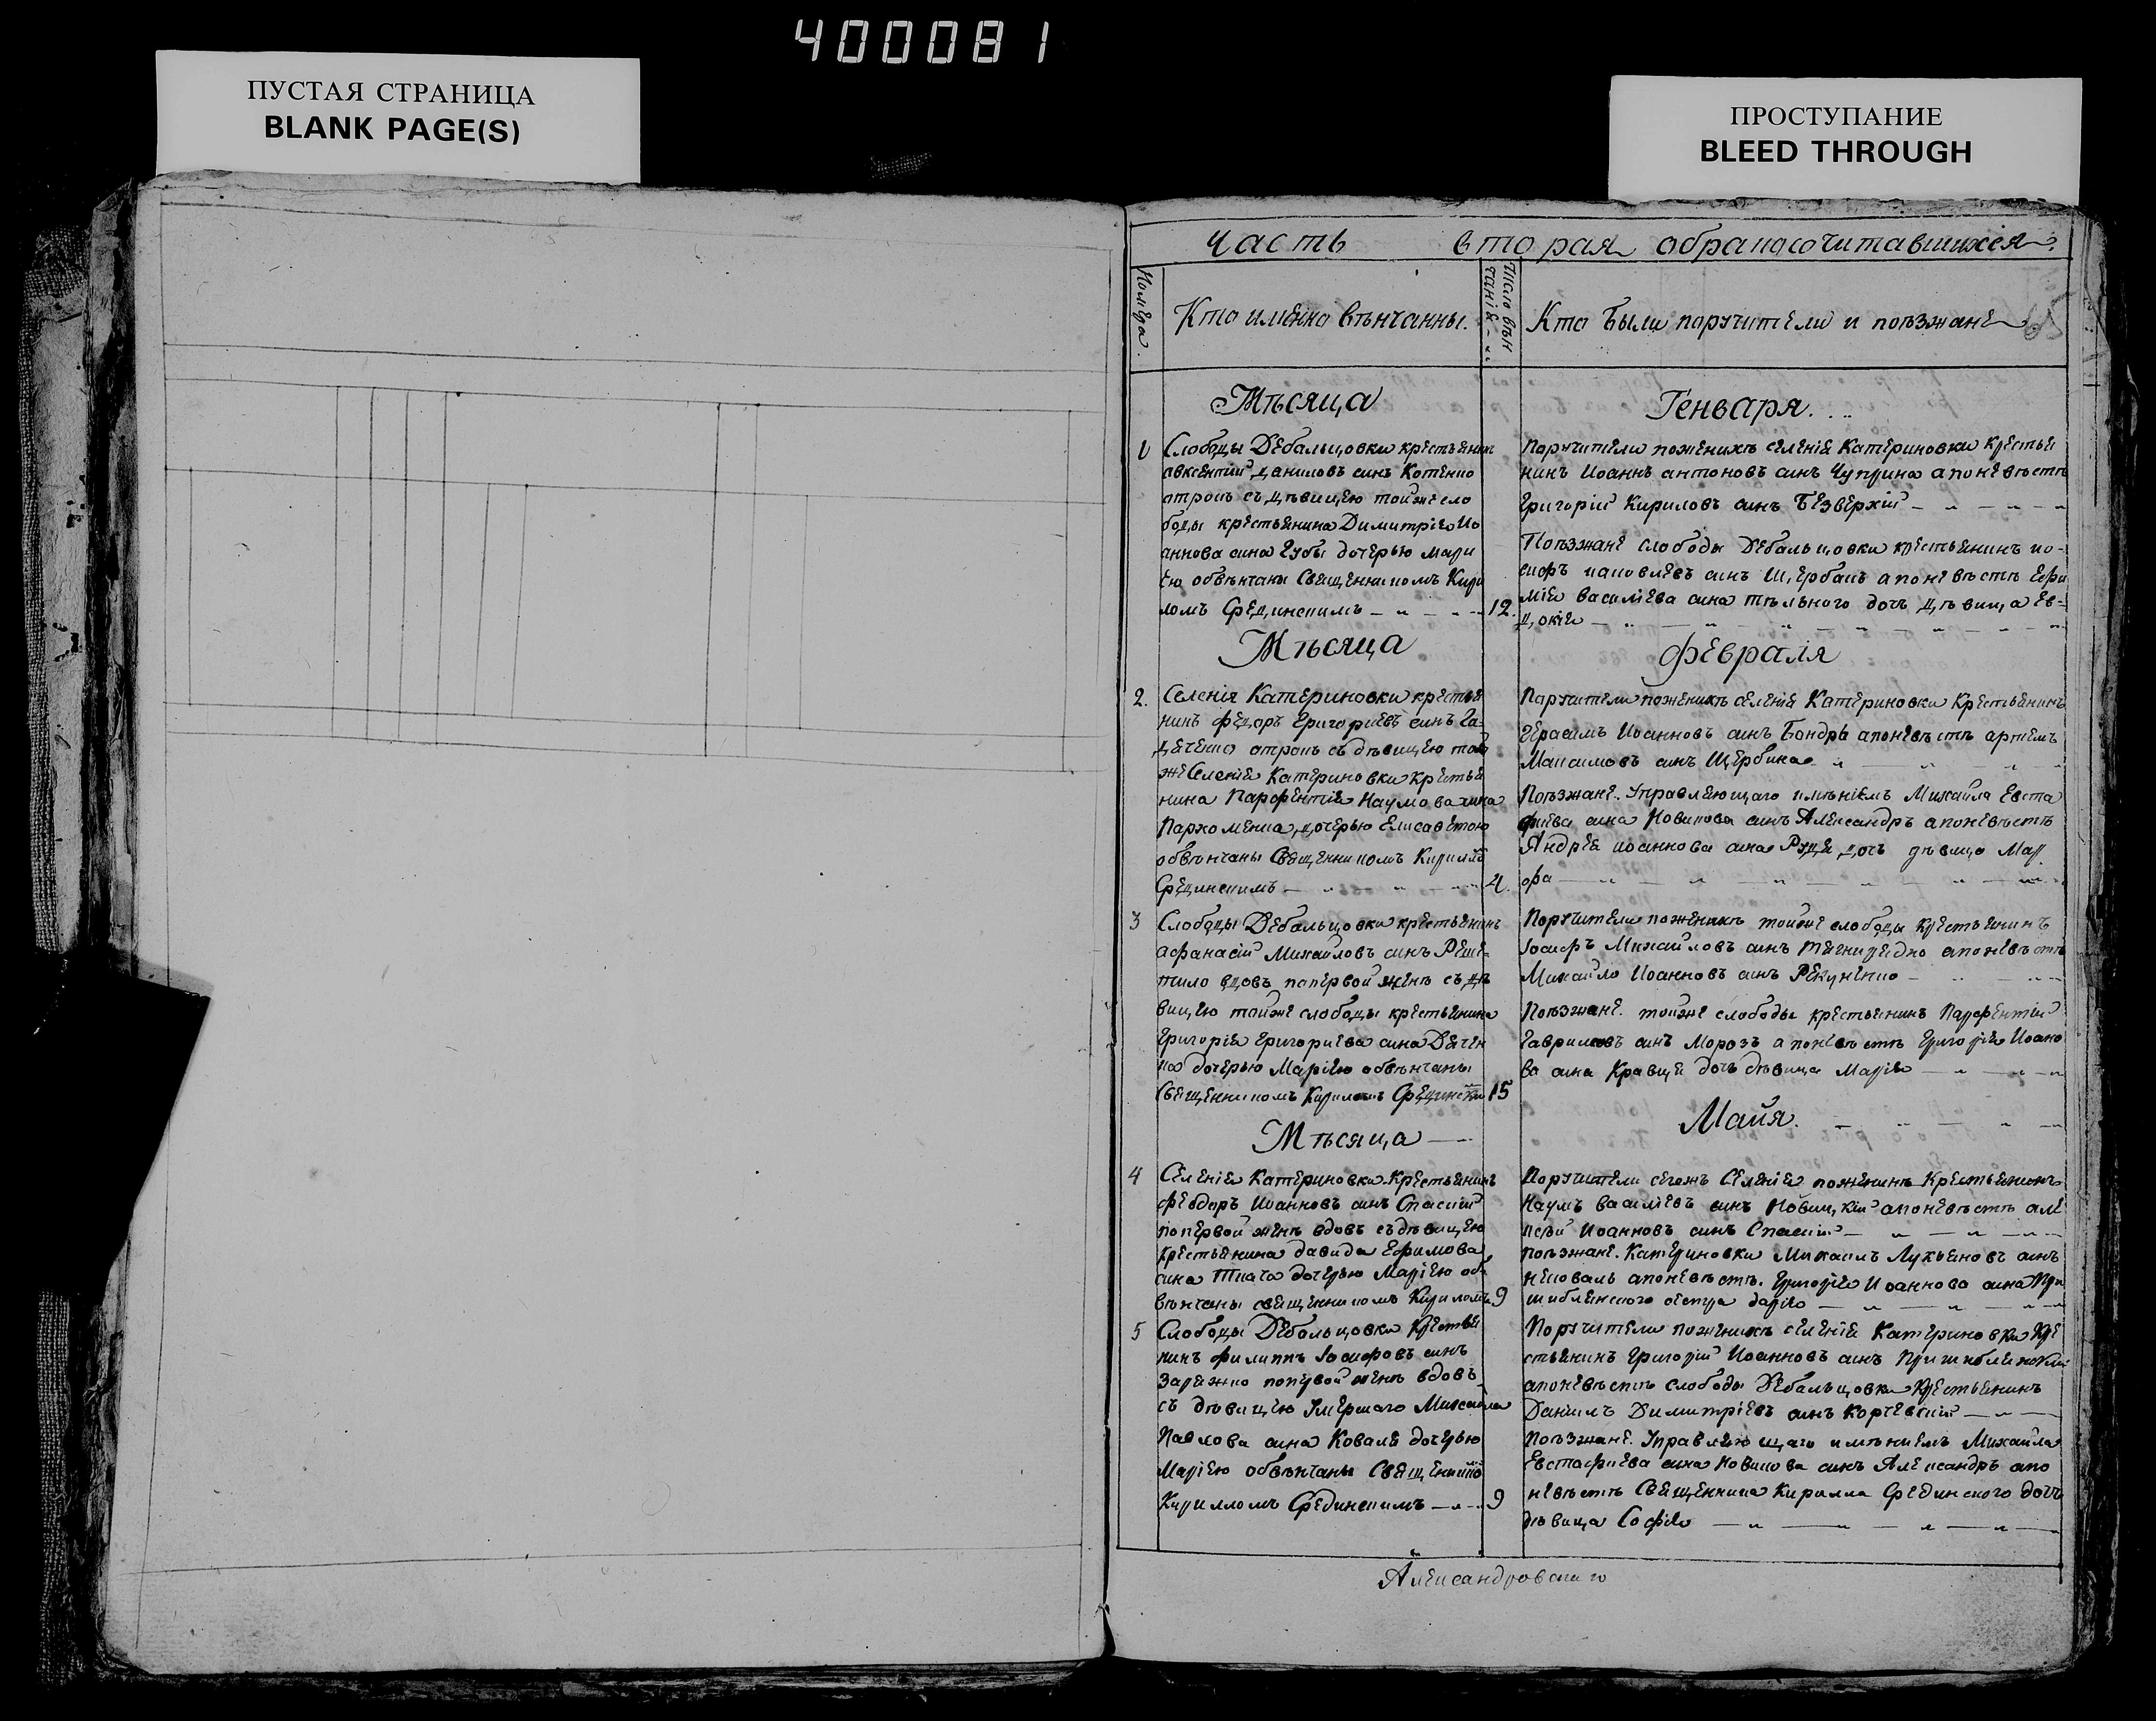 400081
ПУСТАЯ СТРАНИЦА
BLANK PAGE(S)
ПРОСТУПАНИЕ
BLEED THROUGH
Часть вторая обракосочитавшихся.
Номера.
Кто именно вѣнчанны.
Число вѣн
чаній
Кто были поручители и поѣзжанѣ
65
Мѣсяца
Генваря.
1 Слободы Дебальцовки крестьянинъ
авксентий даниловъ синъ Котенко
отрокъ съ дѣвицею тойже сло
боды крестьянина Димитрія Ио
аннова сина Губы дочерью Мари
ею обвѣнчаны Священникомъ Кири
ломъ Срединскимъ 12.
Поручители поженихѣ селенія Катериновки крестья
нинъ Иоаннъ антоновъ синъ Чуприна а поневѣстѣ
Григорій Кириловъ синъ Безверхій
Поѣзжане слободы Дебальцовки крестьянинъ ио-
сифъ иаковлевъ синъ Щербакъ а поневѣстѣ Ефи
мія василіева сина тѣльного дочь дѣвица Ев-
докія
Мѣсяца
Февраля
2. Селенія Катериновки крестья
нинъ Федоръ Григориевъ синъ Га-
дяченко отрокъ съ дѣвицею той
же Селенія Катериновки Крестья
нина Парфентія Наумова сина
Пархоменка дочерью Елисаветою
обвѣнчаны Священникомъ Кирилло
Срединскимъ 4.
Поручители поженихѣ селенія Катериновки Крестьянинъ
Герасимъ Иоанновъ синъ Бондрь а поневѣстѣ артемъ
Максимовъ синъ Щербина
Поѣзжане. Управляющаго имѣніемъ Михайла Евста
фиева сина Новикова синъ Александръ а поневѣстѣ
Андрея иоаннова сина дочь дѣвица Мар
фа
3 Слободы Дебальцовки крестьянинъ
афанасій Михайловъ синъ Реше-
тило вдовъ попервой женѣ съ дѣ
вицею тойже слободы крестьянина
Григорія Григориева сина Дячен
ка дочерью Маріею обвѣнчаны
Священникомъ Кириломъ Срединским 15
Поручители поженихѣ тойже слободы крестьянинъ
Іосифъ Михайловъ синъ Тягнирядно а поневѣстѣ
Михайло Иоанновъ синъ Рекуненко
Поѣзжане. тойже слободы крестьянинъ Парфентій
Гавриловъ синъ Морозъ а поневѣстѣ Григорія Иоано
ва сина Кравця дочь дѣвица Марія
Мѣсяца
Майя.
4 Селенія Катериновки Крестьянинъ
Феодоръ Иоанновъ синъ Спаскій
попервой женѣ вдовъ съ дѣвицею
Крестьянина давида Ефимова
сина Ткача дочерью Маріею об
вѣнчаны священникомъ Кириломъ 9
Поручители сегожъ Селенія поженихѣ Крестьянинъ
Наумъ василіевъ синъ Новицкій а поневѣстѣ але
ксѣй Иоанновъ синъ Спаскій
поѣзжане. Катериновки Михаилъ Лукьяновъ синъ
а поневѣстѣ. Григорія Иоаннова сина При
шиблинского сестра дарія
5 Слободы Дебальцовки Крестья
нинъ филиппъ Іосифовъ синъ
попервой женѣ вдовъ
съ дѣвицею Умершаго Михайла
Павлова сина Коваля дочерью
Маріею обвѣнчаны Священнико
Кирилломъ Срединскимъ 9
Поручители поженихѣ селенія Катериновки Кре
стьянинъ Григорій Иоанновъ синъ Пришиблинскій
а поневѣстѣ слободы Дебальцовки Крестьянинъ
Даніилъ Димитріевъ синъ Корчевскій
Поѣзжане. Управляющаго имѣниемъ Михайла
Евстафиева сина Новикова синъ Александръ а по
невѣстѣ Священника Кирилла Срединского дочь
дѣвица Софія
Александровского